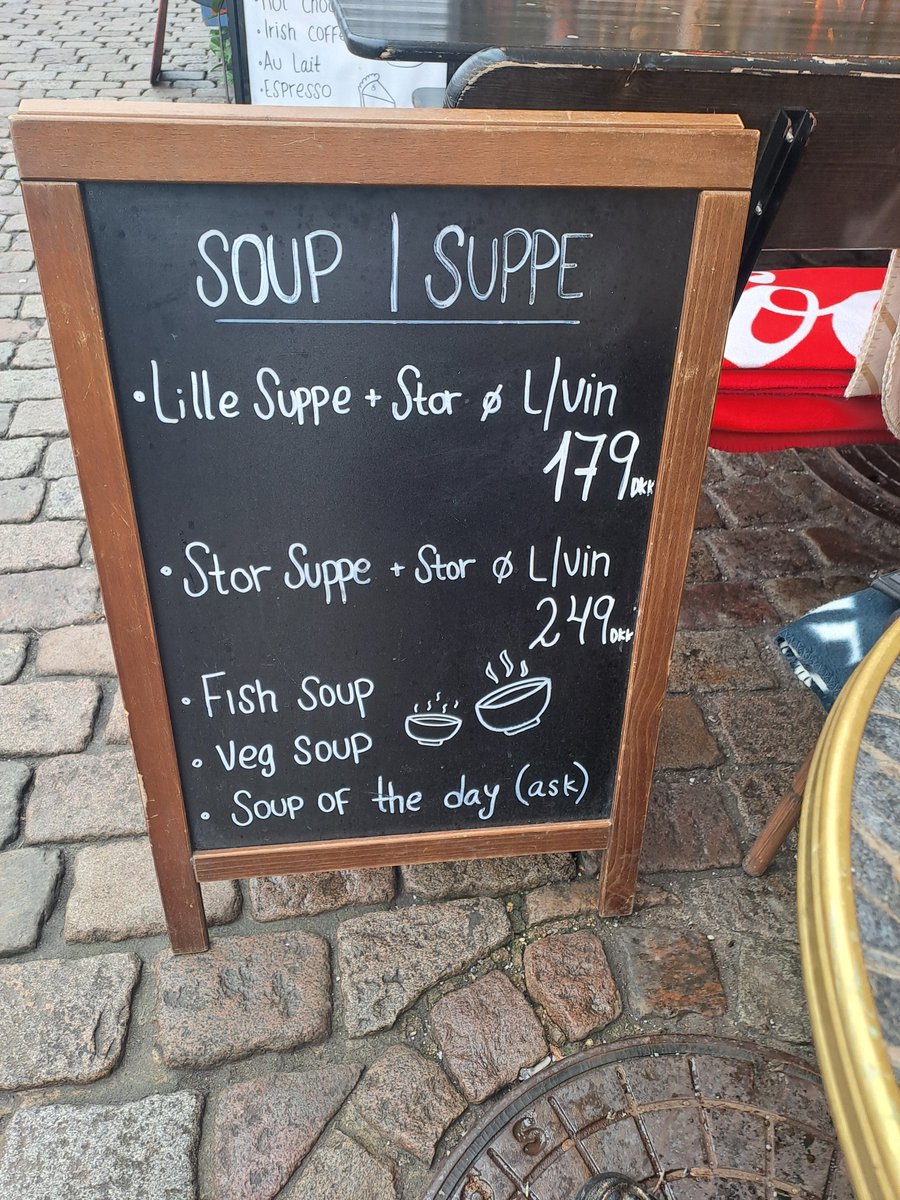 • Irish coffe
• Au Lait
• Espresso
SOUP | SUPPE
• Lille Suppe + Stor ø L/vin
179 DKK
• Stor Suppe + Stor ø L/vin
249 DKK
• Fish Soup
• Veg soup
• Soup of the day (ask)